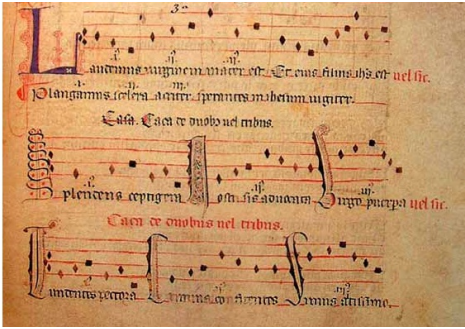 3ª
Laudemus uirginem mater est. Et eius filius ihs est uel sic.
Plangamus scelera acriter sperantes in ihesum iugiter.
Caça de duobus uel tribus.
Splendens ceptigera Nostris sis aduocata Uirgo puerpera uel sic.
Caça de duobus uel tribus.
Tundentes pectora Crimina confitentes Simus altissimo.